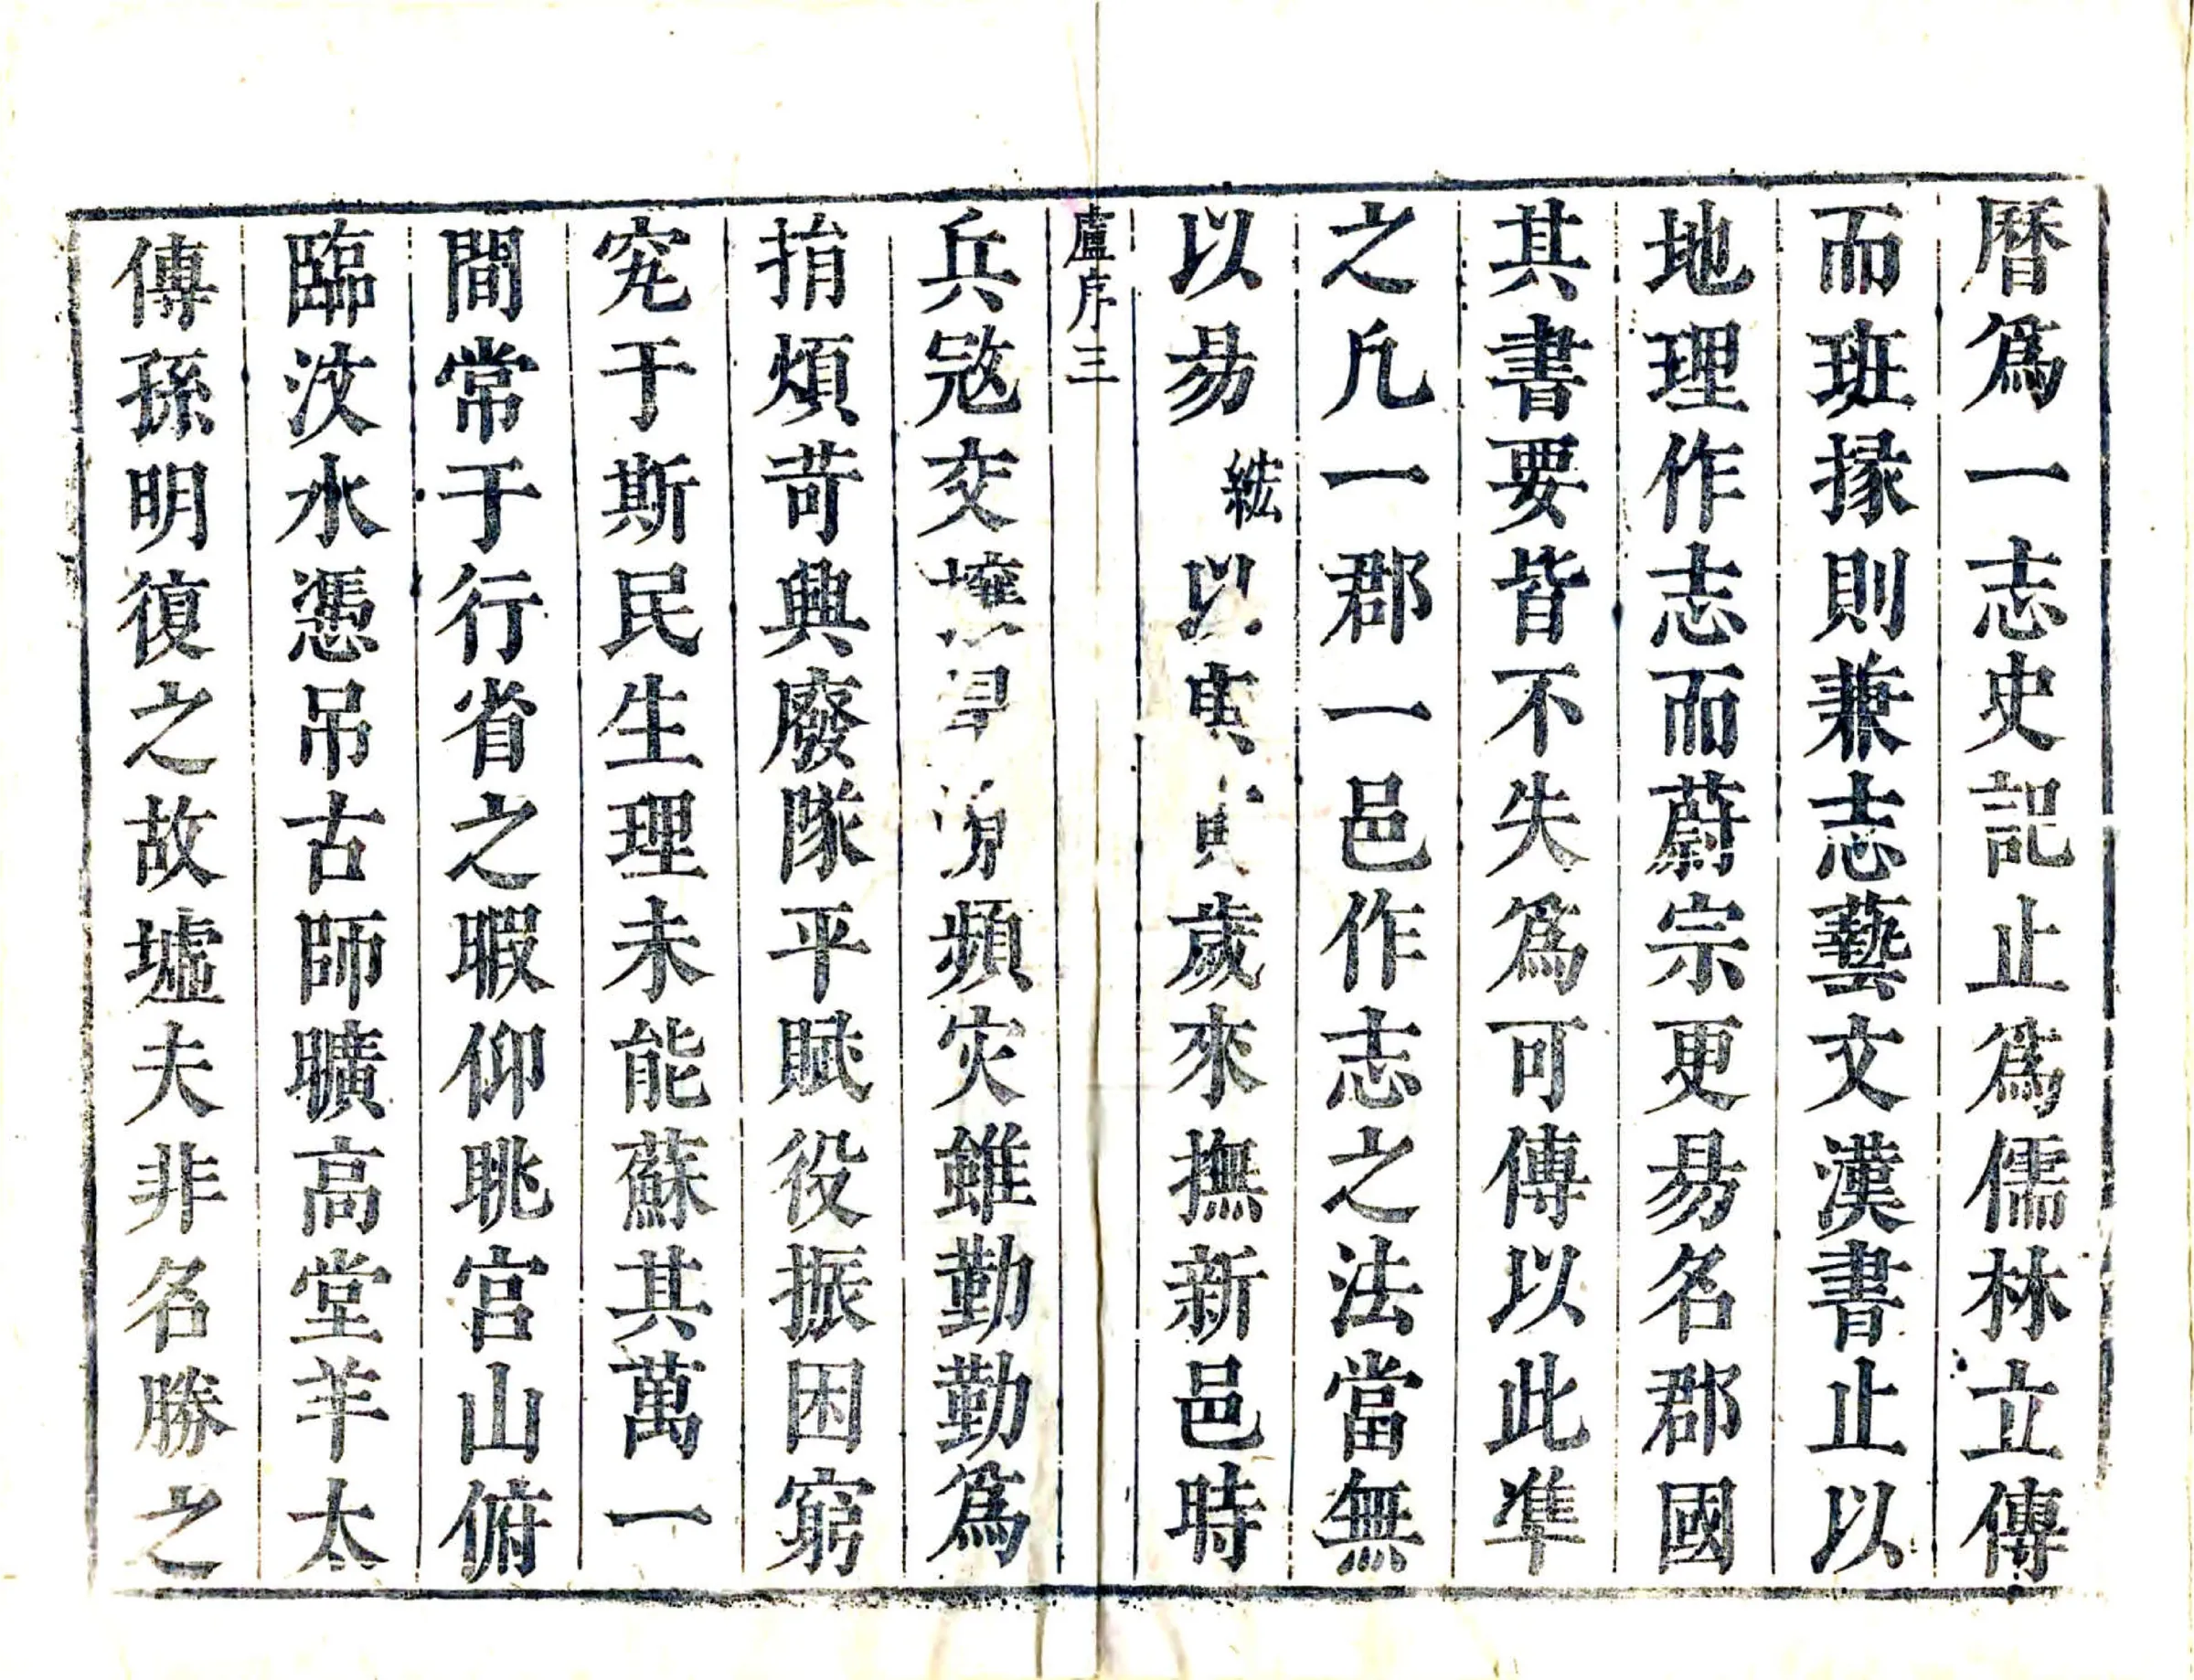 曆爲一志史記止爲儒林立傳
而班掾則兼志藝文漢書止以
地理作志而蔚宗更昜名郡國
其書要皆不失爲可傳以此準
之凢一郡一邑作志之法當無
以昜 綋以寅 歲來撫新邑時
盧序三
兵寇交 頻灾雖勤勤爲
捐煩苛興廢隊平賦役振困窮
究于斯民生理未能蘇其萬一
間常于行省之暇仰眺宫山俯
臨汶水憑吊古師曠高堂羊太
傳孫明復之故墟夫非名勝之